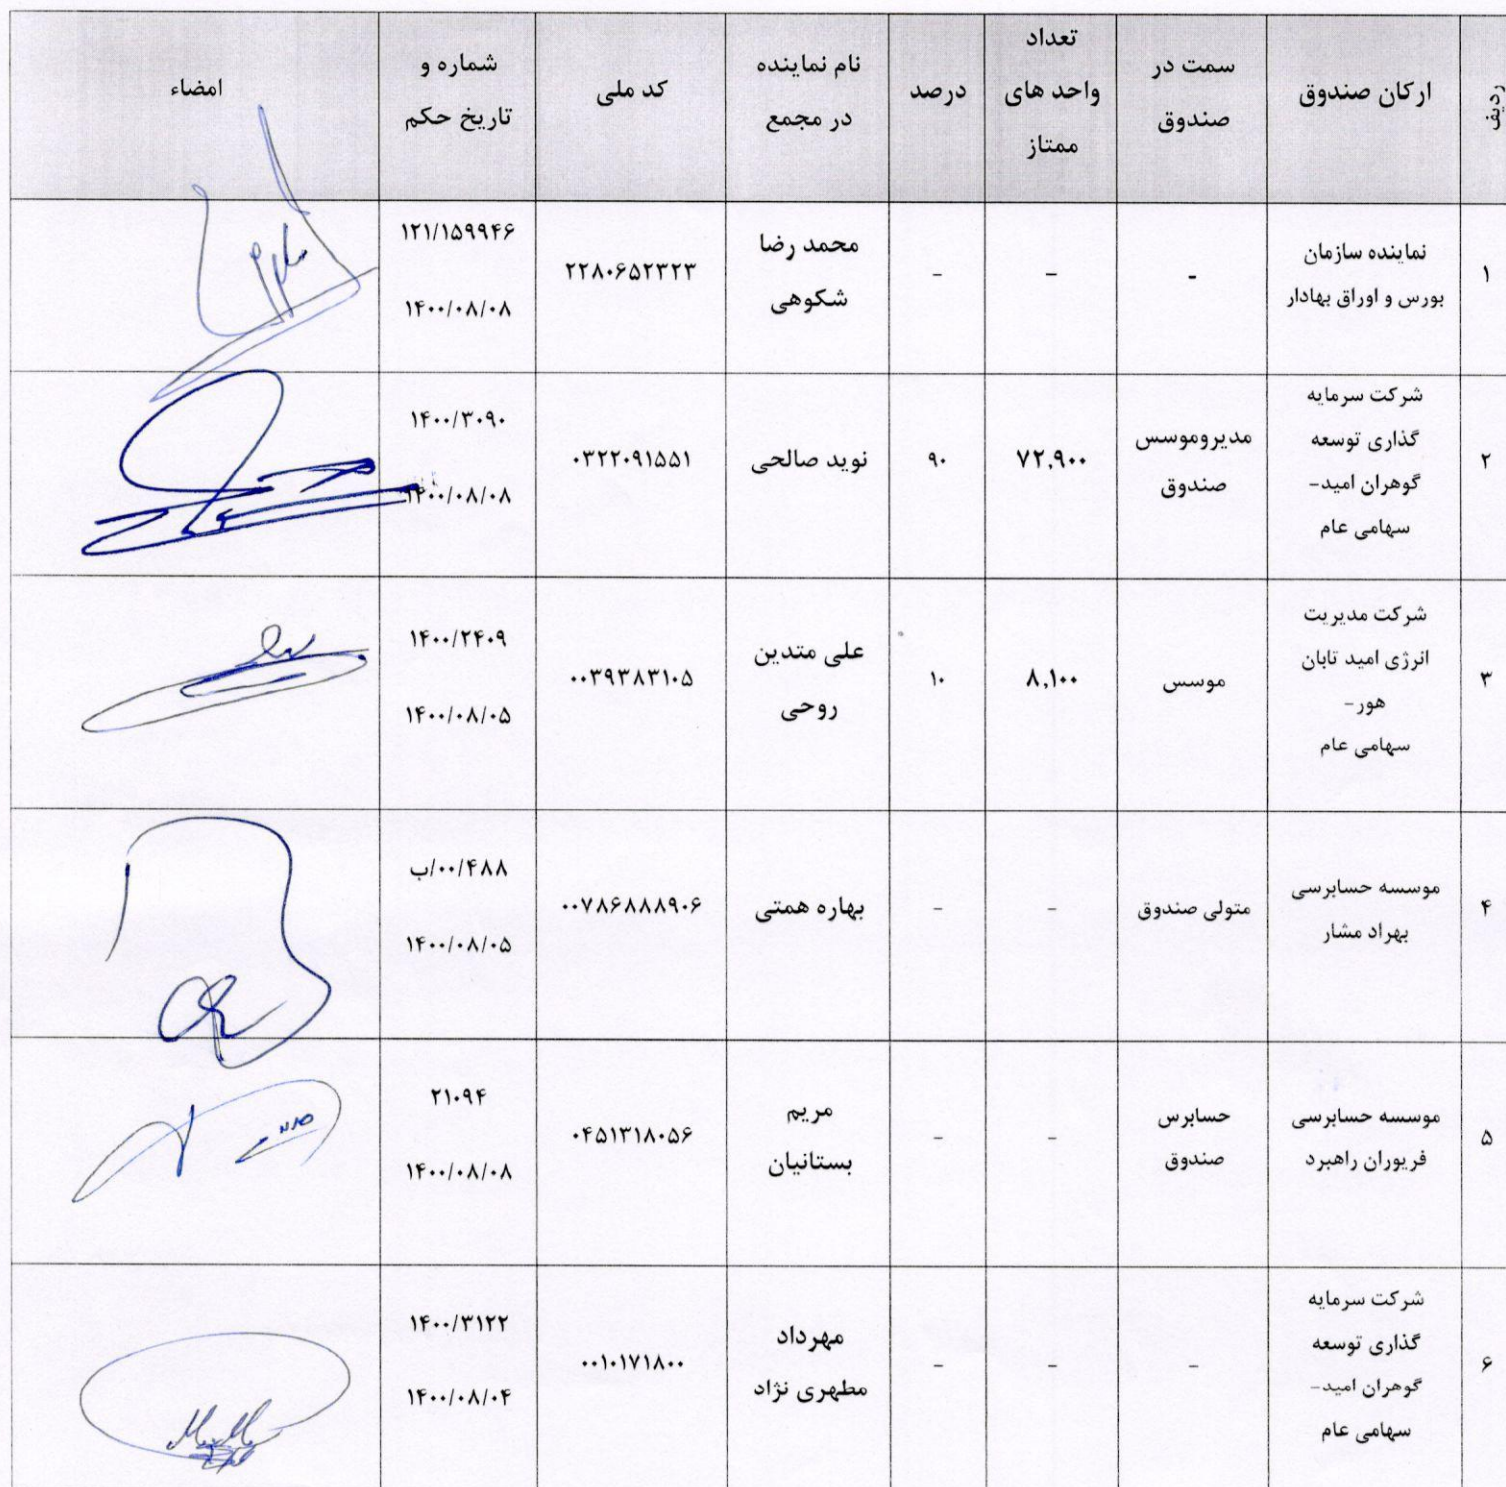 ردیف
ارکان صندوق
سمت در
صندوق
تعداد
واحد های
ممتاز
درصد
نام نماینده
در مجمع
کد ملی
شماره و
تاریخ حکم
امضاء
۱
نماینده سازمان
بورس و اوراق بهادار
-
-
-
محمد رضا
شکوهی
۲۲۸۰۶۵۲۳۲۳
۱۲۱/۱۵۹۹۴۶
۱۴۰۰/۰۸/۰۸
۲
شرکت سرمایه
گذاری توسعه
گوهران امید-
سهامی عام
مدیروموسس
صندوق
۷۲,۹۰۰
۹۰
نوید صالحی
۰۳۲۲۰۹۱۵۵۱
۱۴۰۰/۳۰۹۰
۱۴۰۰/۰۸/۰۸
۳
شرکت مدیریت
انرژی امید تابان
هور-
سهامی عام
موسس
۸,۱۰۰
۱۰
علی متدین
روحی
۰۰۳۹۳۸۳۱۰۵
۱۴۰۰/۲۴۰۹
۱۴۰۰/۰۸/۰۵
۴
موسسه حسابرسی
بهراد مشار
متولی صندوق
-
-
بهاره همتی
۰۰۷۸۶۸۸۸۹۰۶
۰۰/۴۸۸/ب
۱۴۰۰/۰۸/۰۵
۵
موسسه حسابرسی
فریوران راهبرد
حسابرس
صندوق
-
-
مریم
بستانیان
۰۴۵۱۳۱۸۰۵۶
۲۱۰۹۴
۱۴۰۰/۰۸/۰۸
۶
شرکت سرمایه
گذاری توسعه
گوهران امید-
سهامی عام
-
-
-
مهرداد
مطهری نژاد
۰۰۱۰۱۷۱۸۰۰
۱۴۰۰/۳۱۲۲
۱۴۰۰/۰۸/۰۴